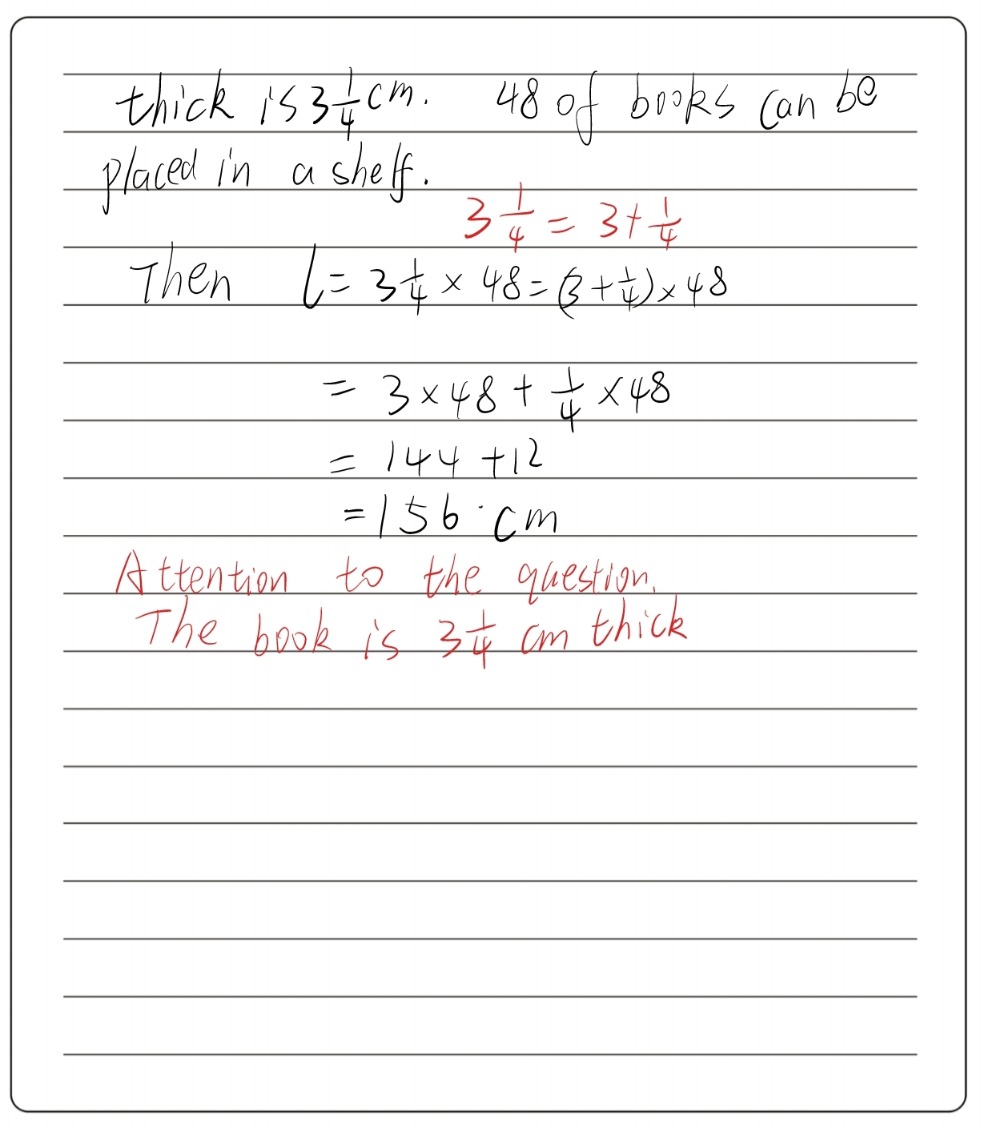 thick is 3 1/4 cm. 48 of books can be
placed in a shelf.
3 1/4 = 3 + 1/4
Then l = 3 1/4 × 48 = (3 + 1/4) × 48
= 3 × 48 + 1/4 × 48
= 144 + 12
= 156 · cm
Attention to the question.
The book is 3 1/4 cm thick